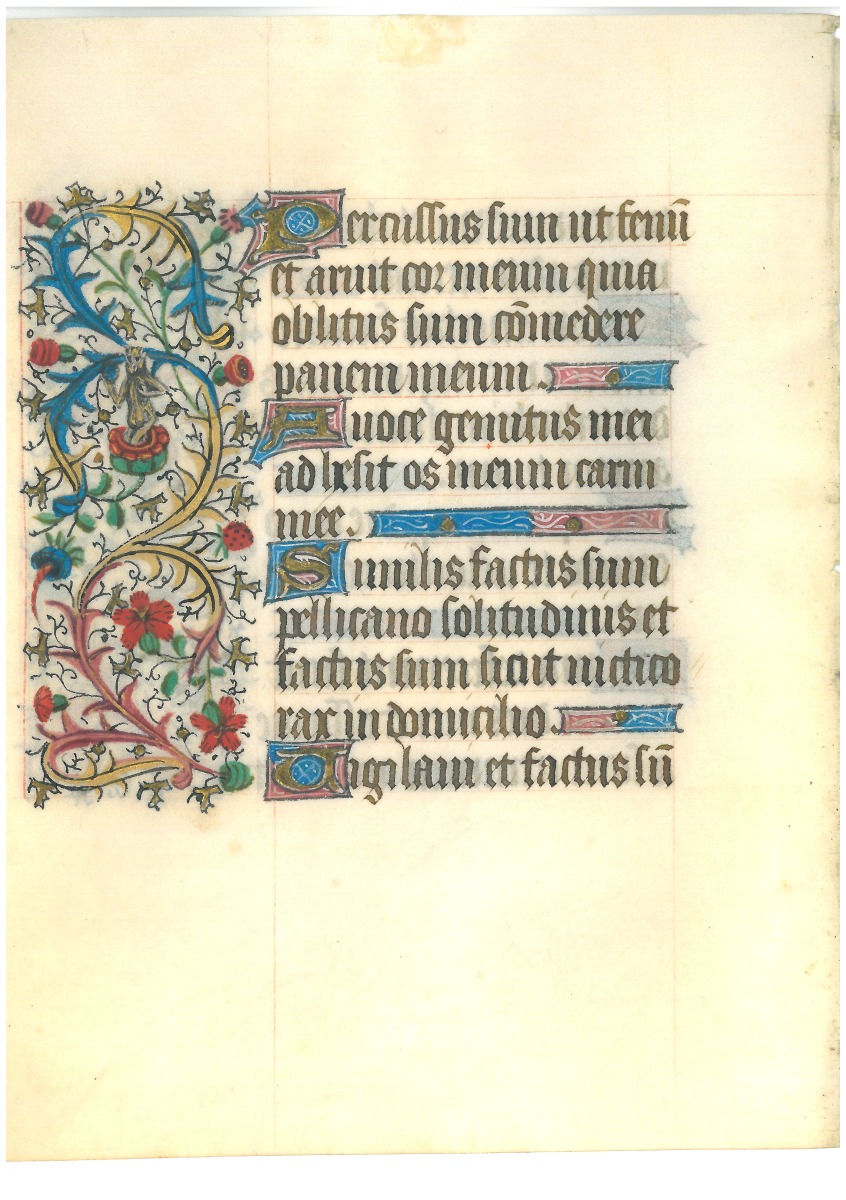 Percussus sum ut fenū
et aruit cor meum quia
oblitus sum cōmedere
panem meum.
A uoce gemitus mei
adhesit os meum carni
mee.
Similis factus sum
pellicano solitudinis et
factus sum sicut nictico
rax in domicilio.
Uigilaui et factus sū